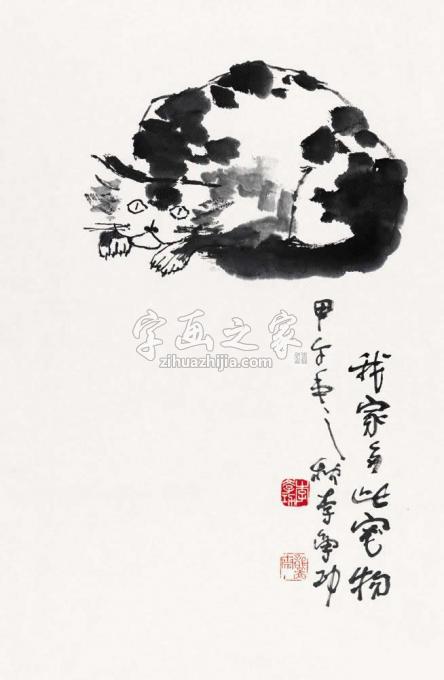 我家有此宠物
甲午年之秋李学功
字画之家
zihuazhijia.com